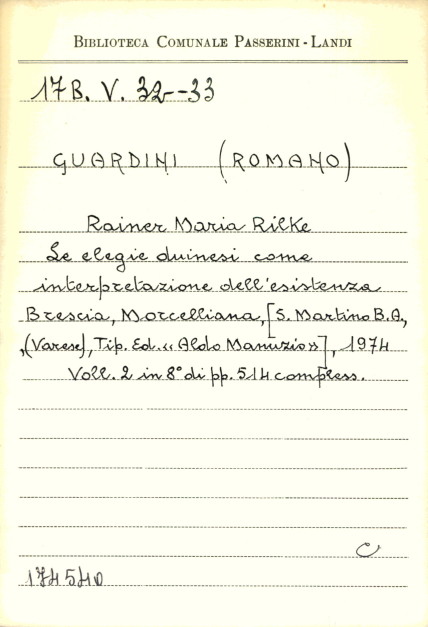 BIBLIOTECA COMUNALE PASSERINI - LANDI
17B. V. 32--33
GUARDINI (ROMANO)
Rainer Maria Rilke
Le elegie duinesi come
interpretazione dell'esistenza
Brescia, Morcelliana, [S. Martino B.A,
,(Varese), Tip. Ed. "Aldo Manuzio"], 1974
Voll. 2 in 8° di pp. 514 compless.
C
174540